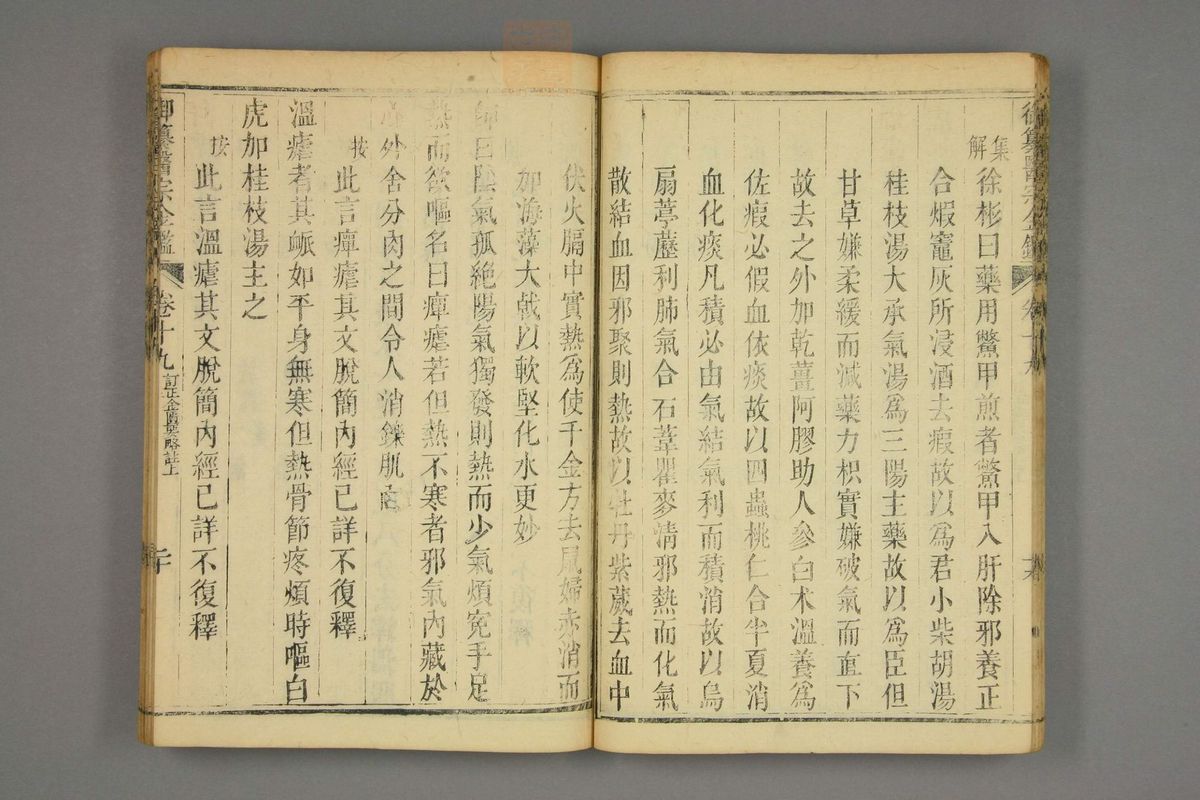 御纂醫宗金鑑 卷十九
集解
徐彬曰藥用鱉甲煎者鱉甲入肝除邪養正
合煆竈灰所浸酒去瘕故以為君小柴胡湯
桂枝湯大承氣湯為三陽主藥故以為臣但
甘草嫌柔緩而減藥力枳實嫌破氣而直下
故去之外加乾薑阿膠助人參白术溫養為
佐瘕必假血依痰故以四蟲桃仁合半夏消
血化痰凡積必由氣結氣利而積消故以烏
扇葶藶利肺氣合石葦瞿麥淸邪熱而化氣
散結血因邪聚則熱故以牡丹紫葳去血中
伏火膈中實熱為使千金方去鼠婦赤消而
加海藻大戟以軟堅化水更妙
師曰陰氣孤絕陽氣獨發則熱而少氣煩寃手足
熱而欲嘔名曰癉瘧若但熱不寒者邪氣內藏於
心外舍分肉之間令人消鑠肌肉
按
此言癉瘧其文脫簡內經已詳不復釋
溫瘧者其脈如平身無寒但熱骨節疼煩時嘔白
虎加桂枝湯主之
按
此言溫瘧其文脫簡內經已詳不復釋
御纂醫宗金鑑 卷十九 訂正金匱要略註上 二十